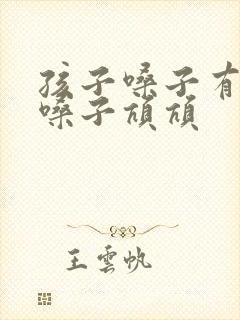 孩子嗓子有
嗓子
王雲帆